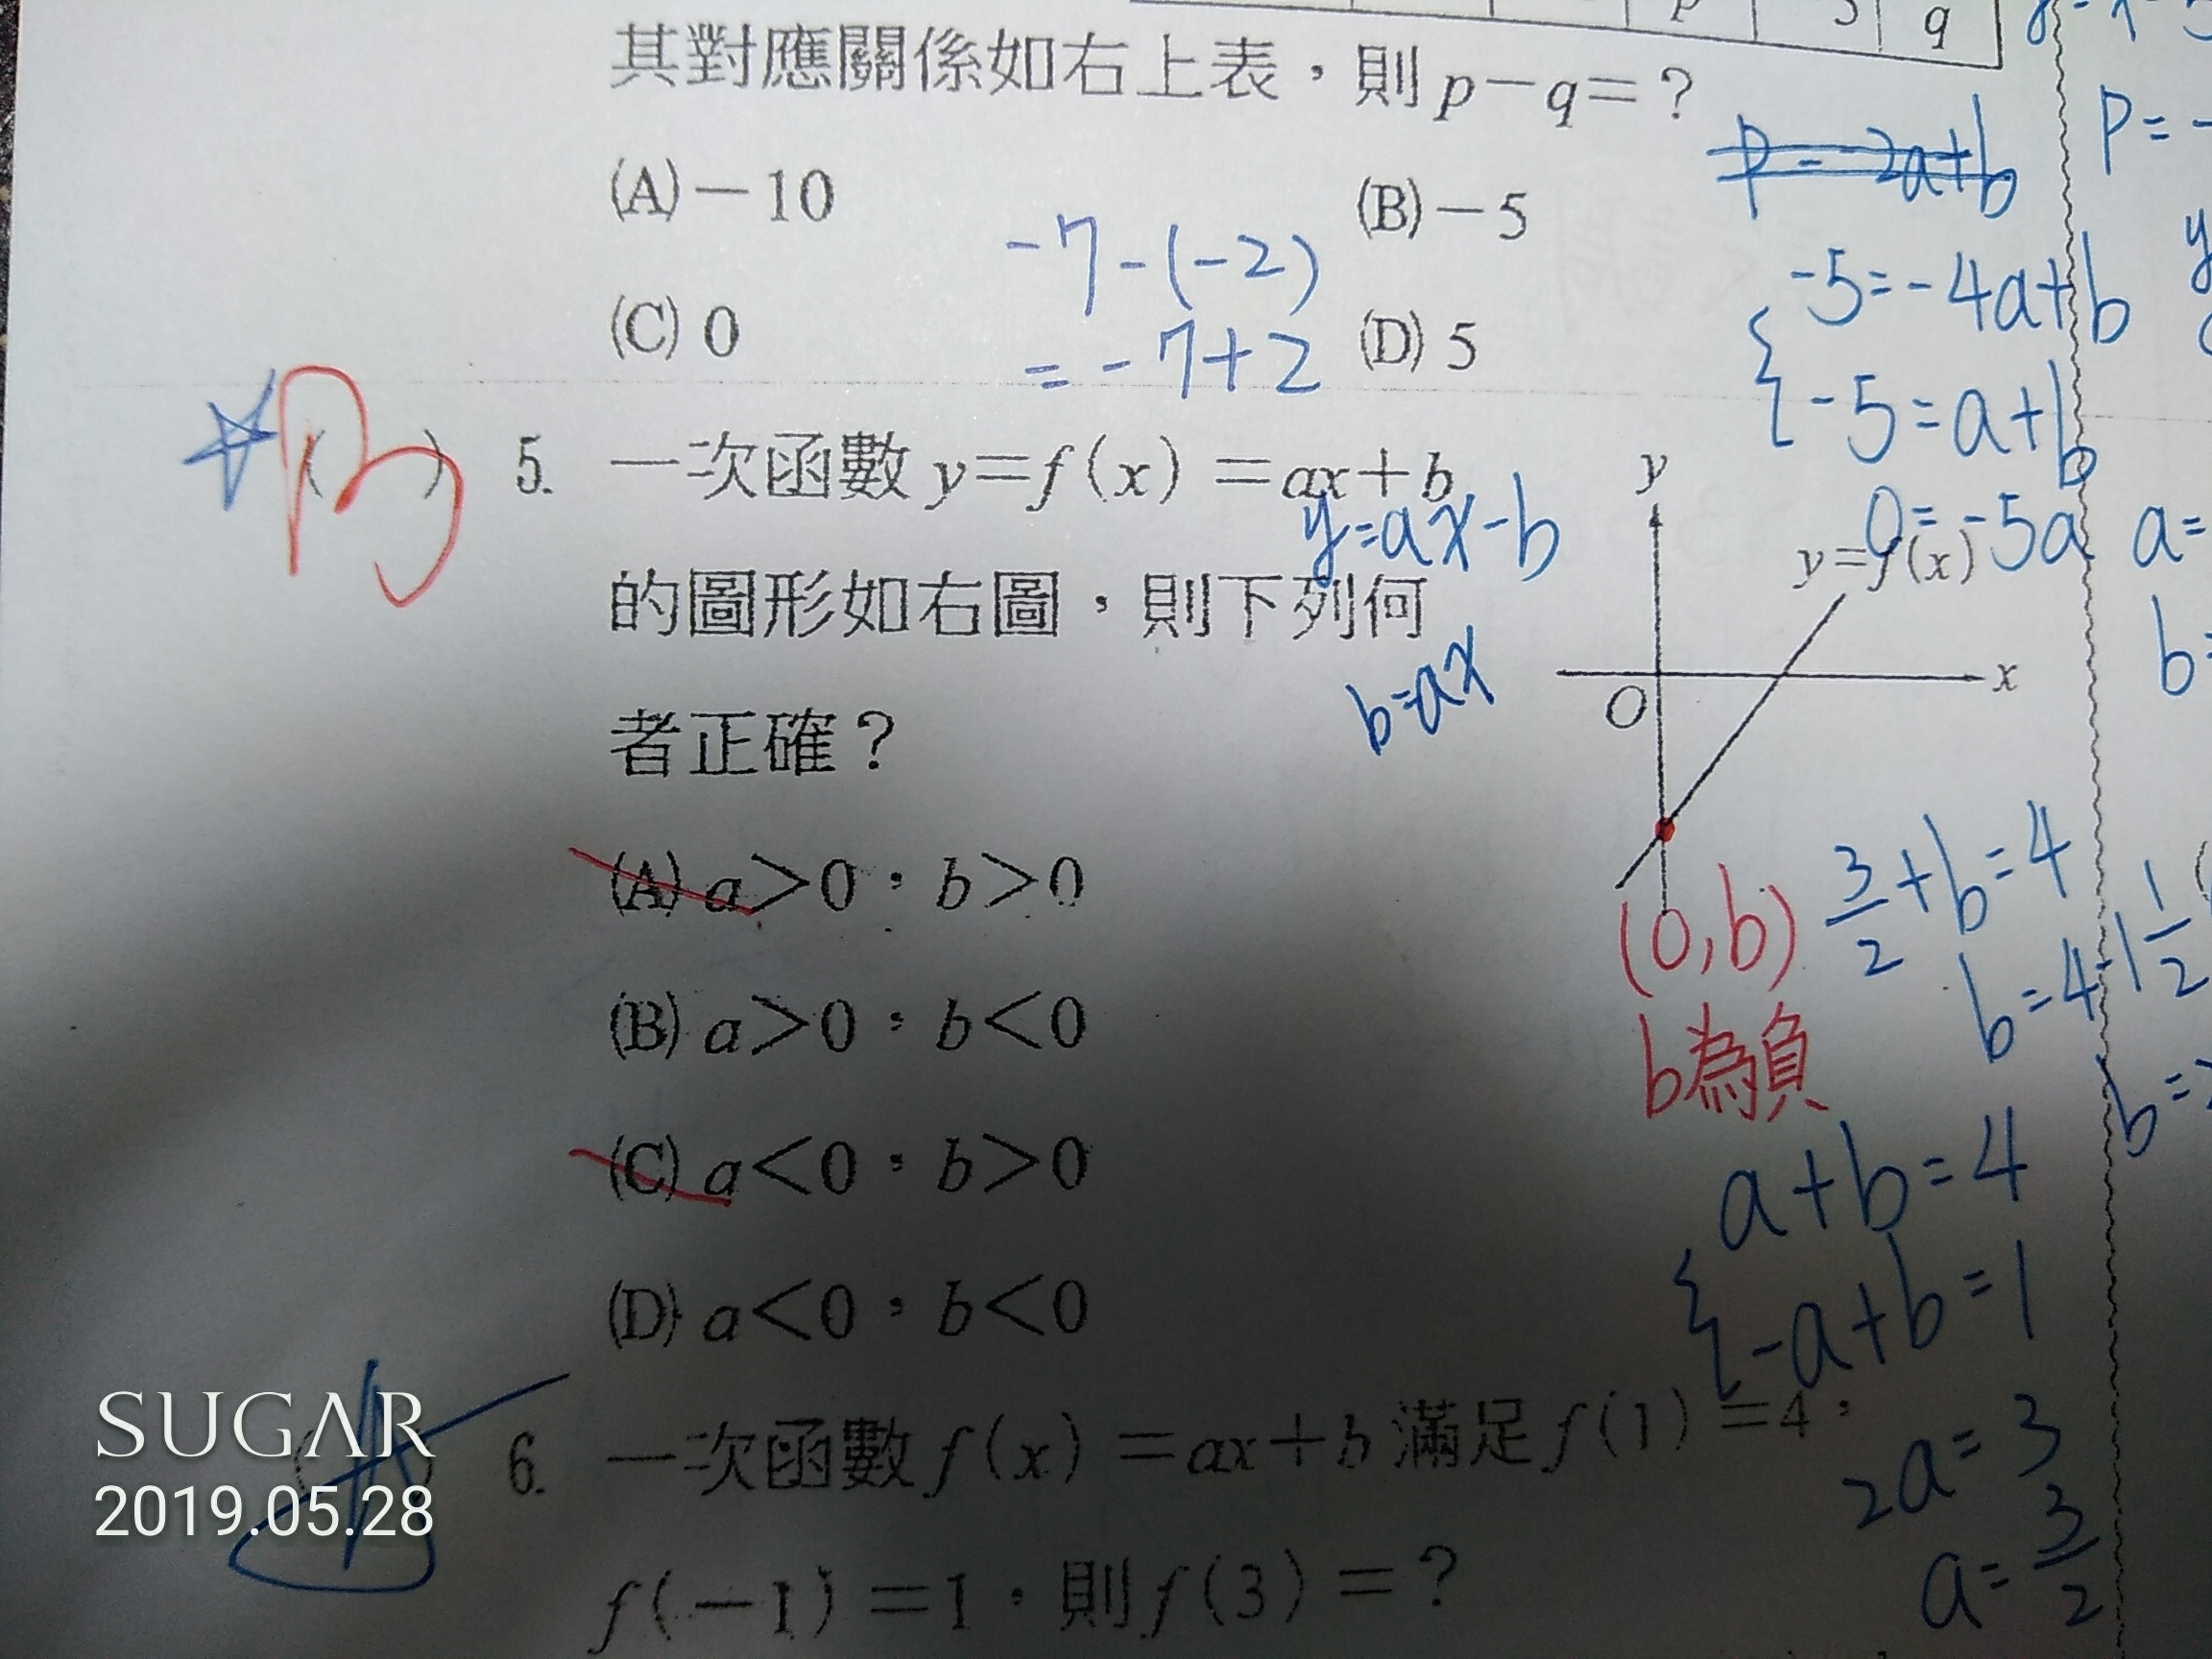 p 5 q
其對應關係如右上表，則p－q＝？
(A)－10 (B)－5
(C) 0 (D) 5
p = -2a+b
-7-(-2)
= -7+2
-5=-4a+b
-5=a+b
0=-5a
a=
b=
B
( ) 5. 一次函數y＝f(x)＝ax＋b
的圖形如右圖，則下列何
者正確？
y=ax-b
b=ax
y
y＝f(x)
x
O
(A) a＞0，b＞0
(B) a＞0，b＜0
(C) a＜0，b＞0
(D) a＜0，b＜0
(0,b)
b為負
3/2+b=4
b=4-1 1/2
a+b=4
-a+b=1
2a=3
a=3/2
6. 一次函數f(x)＝ax＋b滿足f(1)＝4，
f(－1)＝1，則f(3)＝？
SUGAR
2019.05.28